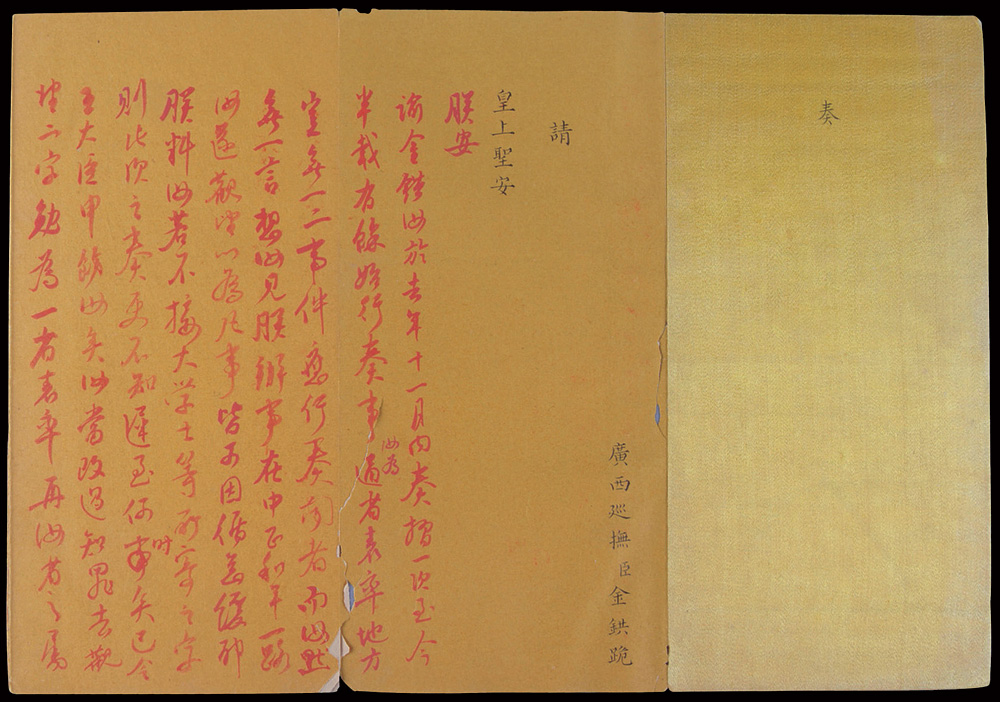 奏
廣西巡撫臣金鉷跪
請
皇上聖安
朕安
諭金鉷汝於去年十一月內奏摺一次至今
半載有餘始行奏事汝為通省表率地方
豈無一二事件應行奏聞者而汝默
無一言想汝見朕辦事在中正和平一路
汝遂觀望以為凡事皆可因循怠緩耶
朕料汝若不接大學士等所寄之字
則此次之奏更不知遲至何時矣已令
王大臣申飭汝矣汝當改過知罪去觀
望二字勉為一省表率再汝省之屬